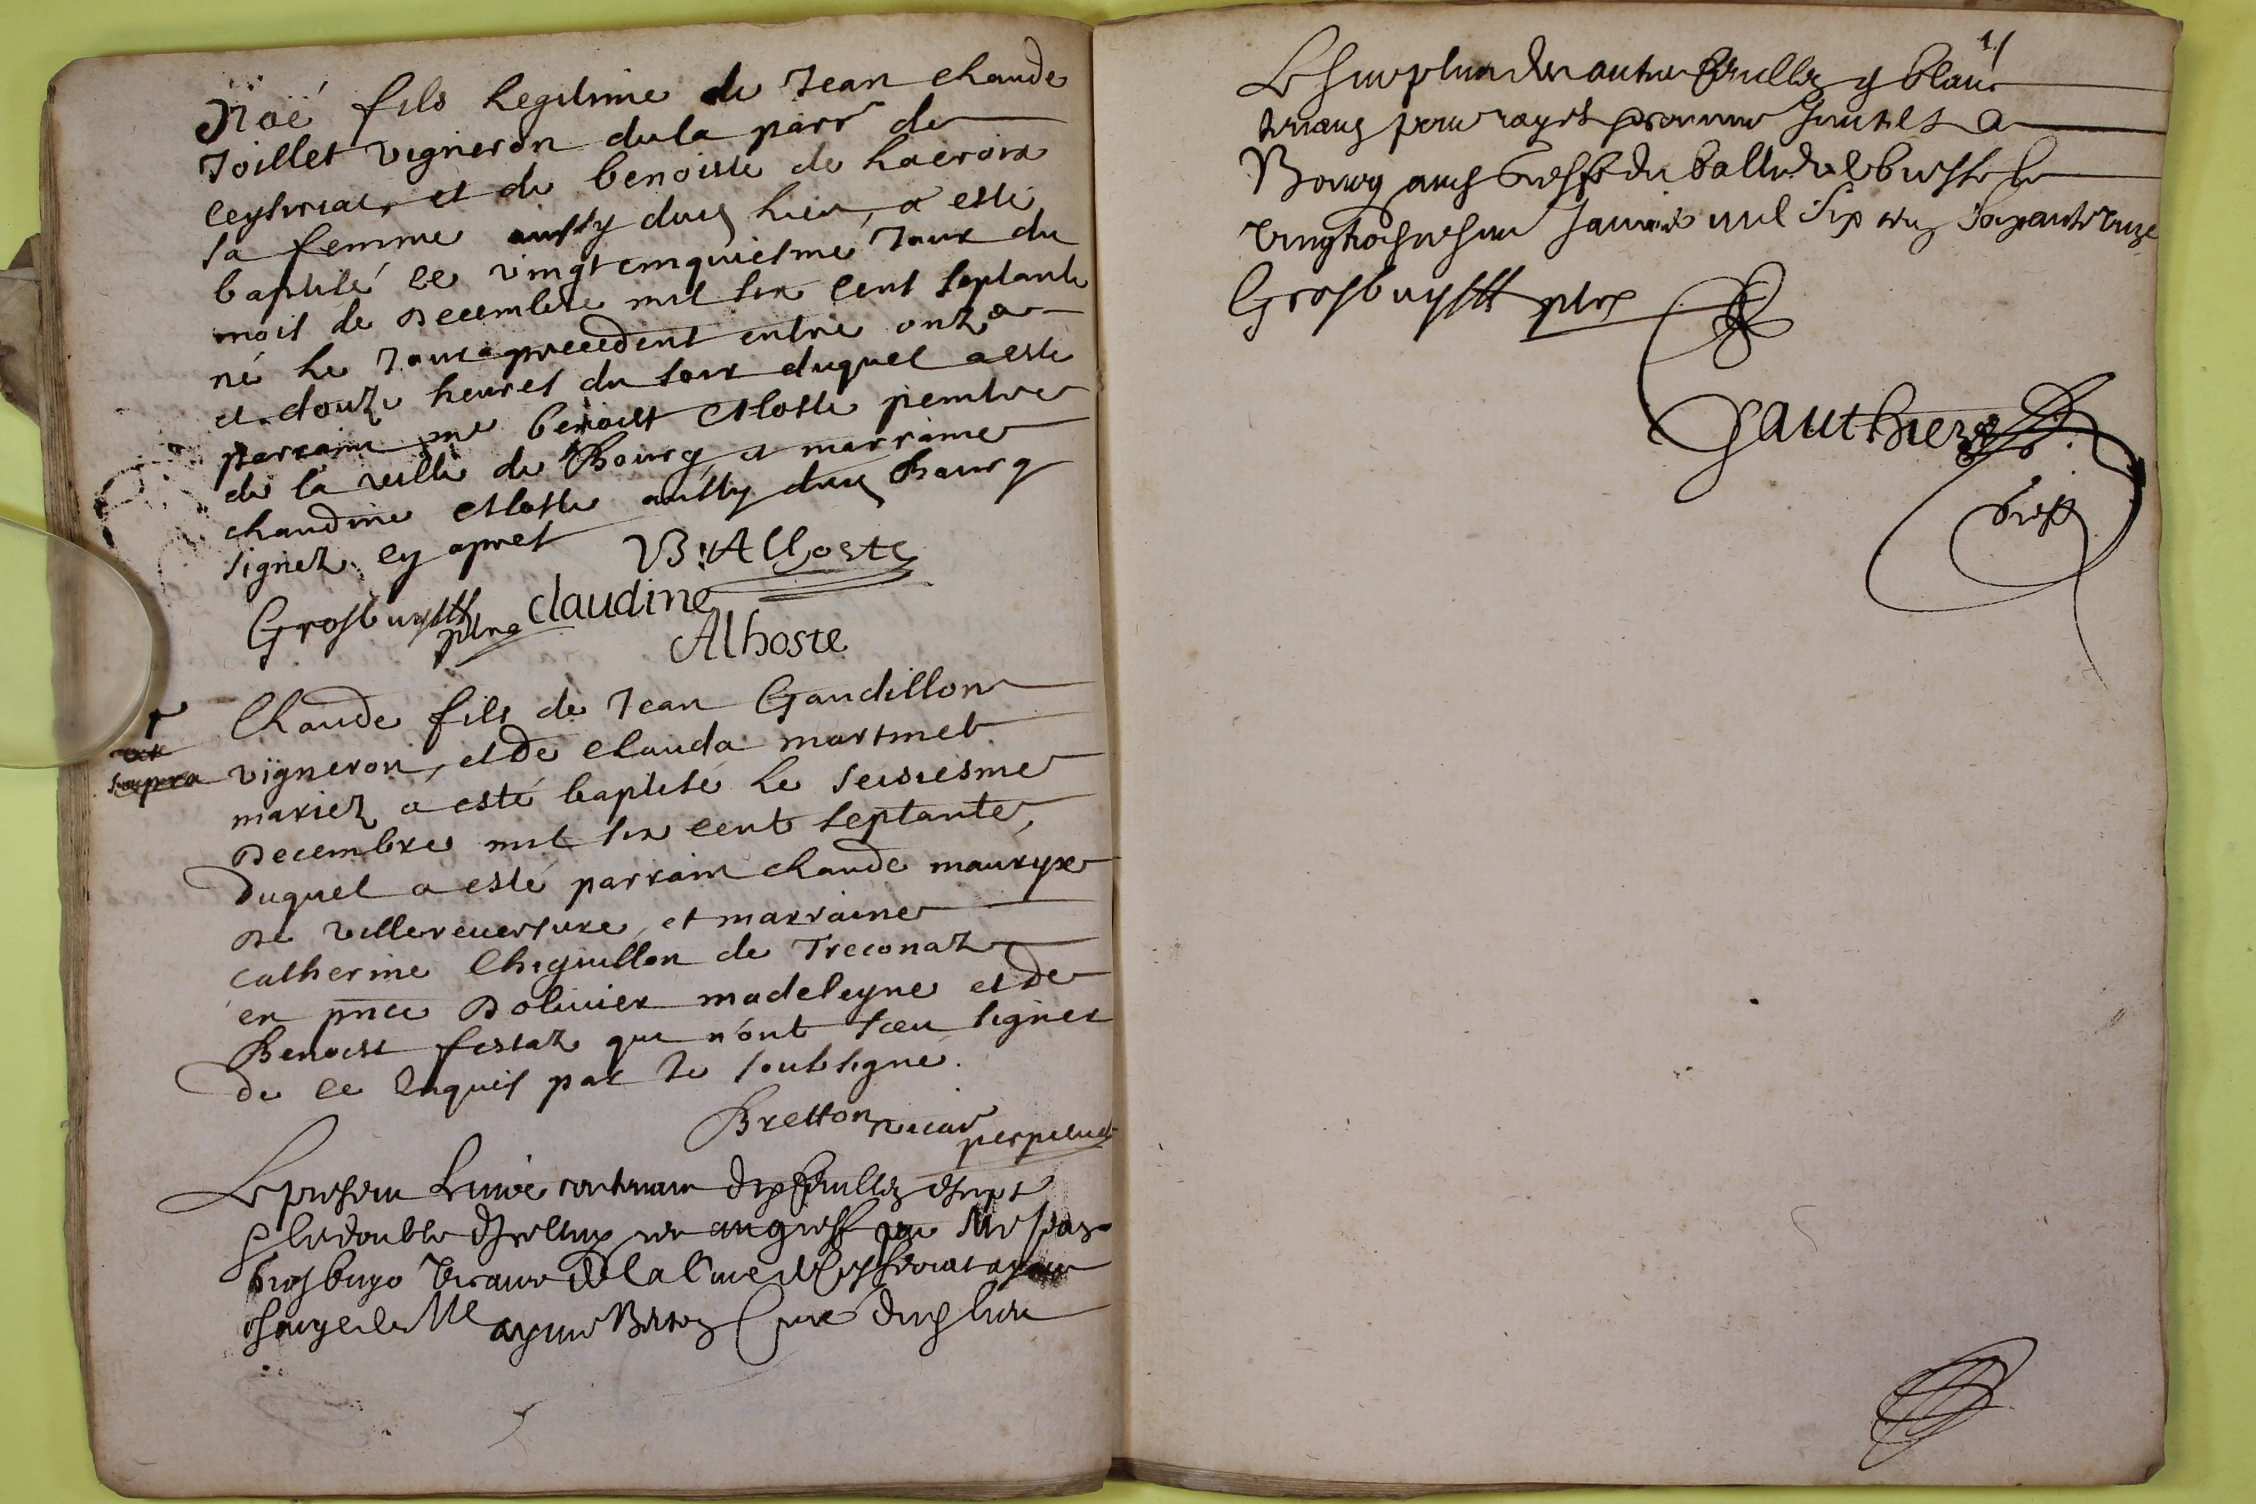 Noé fils legitime de Jean Claude
Joillet vigneron de la parr de
Ceyseriat, et de benoiste de lacroix
sa femme aussy dud lieu, a esté
baptisé le vingt cinquiesme Jour du
mois de Decembre mil six cent septante
né le Jour precedent entre onze
et douze heures du soir duquel a esté
parrain me benoist Alloste peintre
de la ville de Bourg, et marraine
claudine Alloste aussy dud Bourg
signez cy apres
B. Alhoste
Grosbuysson ptre claudine
Alhoste
Claude fils de Jean Gaudillon
ut
supra
vigneron, et de Clauda martinet
mariez a esté baptisé le seisiesme
Decembre mil six cent septante,
Duquel a esté parrain claude mauryx
De villereversure, et marraine
catherine Chiguillon de Treconaz
en pnce D olivier madeleyne et de
Benoist festaz que n'ont sceu signer
de ce enquis par le soubsigné.
Bretton vicaire perpetuel
Le present livre contenant dix feulles escript
le double au greff par Me
de la Cure de Ceyseriat
Me Cure dud lieu
11
Le surplus des autres feulles blanc
Bourg au greffe du balliage de bresse le
Janvier mil six cens soixante unze
ptre
Gauthier
Greff